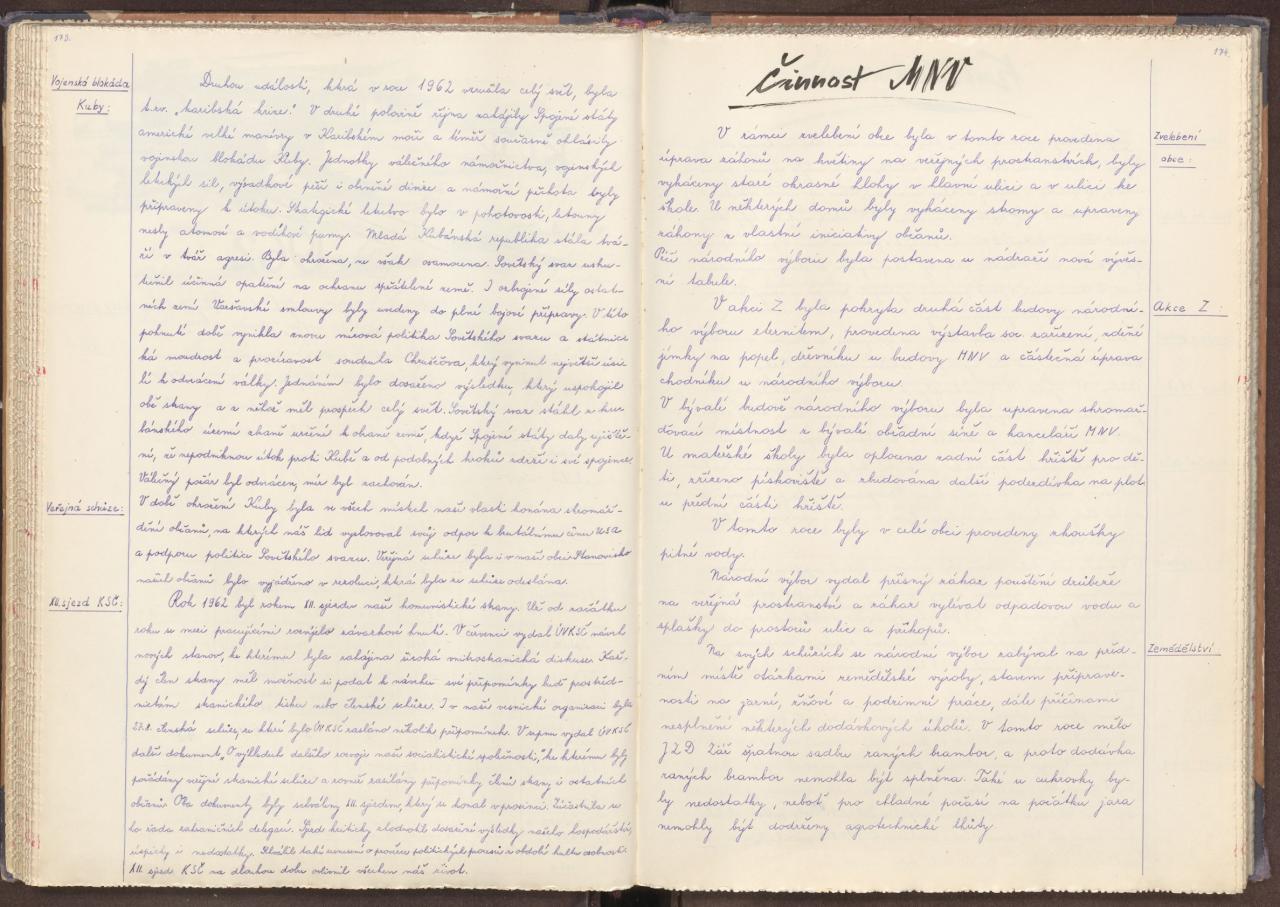 173.
Vojenská blokáda
Kuby:
Druhou událostí, která v roce 1962 vzrušila celý svět, byla
t.zv. „karibská krize." V druhé polovině října zahájily Spojené státy
americké velké manévry v Karibském moři a téměř současně ohlásily
vojenskou blokádu Kuby. Jednotky válečného námořnictva, vojenských
leteckých sil, výsadkové pěší i obrněné divize a námořní pěchota byly
připraveny k útoku. Strategické letectvo bylo v pohotovosti, letouny
nesly atomové a vodíkové pumy. Mladá Kubánská republika stála tvá-
ří v tvář agresi. Byla ohrožena, ne však osamocena. Sovětský svaz usku-
tečnil účinná opatření na ochranu spřátelené země. I ozbrojené síly ostat-
ních zemí Varšavské smlouvy byly uvedeny do plné bojové přípravy. V této
pohnuté době vynikla znovu mírová politika Sovětského svazu a státnic-
ká moudrost a prozíravost soudruha Chruščova, který vyvinul největší úsi-
lí k odvrácení války. Jednáním bylo dosaženo výsledku, který uspokojil
obě strany a z něhož měl prospěch celý svět. Sovětský svaz stáhl z ku-
bánského území zbraně určené k obraně země, když Spojené státy daly ujiště-
ní, že nepodniknou útok proti Kubě a od podobných kroků zdrží i své spojence.
Válečný požár byl odvrácen, mír byl zachován.
Veřejná schůze:
V době ohrožení Kuby byla ve všech místech naší vlasti konána shromáž-
dění občanů, na kterých náš lid vyslovoval svůj odpor k brutálnímu činu USA
a podporu politice Sovětského svazu. Veřejná schůze byla i v naší obci. Stanovisko
našich občanů bylo vyjádřeno v rezoluci, která byla ze schůze odeslána.
XII. sjezd KSČ:
Rok 1962 byl rokem XII. sjezdu naší komunistické strany. Už od začátku
roku se mezi pracujícími rozvíjelo závazkové hnutí. V červenci vydal ÚV KSČ návrh
nových stanov, ke kterému byla zahájena široká vnitrostranická diskuse. Kaž-
dý člen strany měl možnost si podat k návrhu své připomínky buď prostřed-
nictvím stranického tisku nebo členské schůze. I v naší vesnické organizaci byla
27.8. členská schůze, ze které bylo ÚV KSČ zasláno několik připomínek. V srpnu vydal ÚV KSČ
další dokument, „O výhledech dalšího rozvoje naší socialistické společnosti", ke kterému byly
pořádány veřejné stranické schůze a rovněž zasílány připomínky členů strany i ostatních
občanů. Oba dokumenty byly schváleny XII. sjezdem, který se konal v prosinci. Zúčastnila se
ho řada zahraničních delegací. Sjezd kriticky zhodnotil dosažené výsledky našeho hospodářství,
úspěchy i nedostatky. Schválil také usnesení o prověrce politických procesů z období kultu osobnosti.
XII. sjezd KSČ na dlouhou dobu ovlivnil všechen náš život.
174.
Činnost MNV
Zvelebení
obce:
V rámci zvelebení obce byla v tomto roce provedena
úprava záhonů na květiny na veřejných prostranstvích, byly
vykáceny staré okrasné hlohy v hlavní ulici a v ulici ke
škole. U některých domů byly vykáceny stromy a upraveny
záhony z vlastní iniciativy občanů.
Péčí národního výboru byla postavena u nádraží nová vývěs-
ní tabule.
Akce Z:
V akci Z byla pokryta druhá část budovy národní-
ho výboru eternitem, provedena výstavba soc. zařízení, zděné
jímky na popel, dřevníku u budovy MNV a částečná úprava
chodníku u národního výboru.
V bývalé budově národního výboru byla upravena shromaž-
ďovací místnost z bývalé obřadní síně a kanceláře MNV.
U mateřské školy byla oplocena zadní část hřiště pro dě-
ti, zřízeno pískoviště a zbudována další podezdívka na plot
u přední části hřiště.
V tomto roce byly v celé obci provedeny zkoušky
pitné vody.
Národní výbor vydal přísný zákaz pouštění drůbeže
na veřejná prostranství a zákaz vylévat odpadovou vodu a
splašky do prostorů ulic a příkopů.
Zemědělství
Na svých schůzích se národní výbor zabýval na před-
ním místě otázkami zemědělské výroby, stavem připrave-
nosti na jarní, žňové a podzimní práce, dále příčinami
nesplnění některých dodávkových úkolů. V tomto roce mělo
JZD Zář špatnou sadbu raných brambor, a proto dodávka
raných brambor nemohla být splněna. Také u cukrovky by-
ly nedostatky, neboť pro chladné počasí na počátku jara
nemohly být dodrženy agrotechnické lhůty